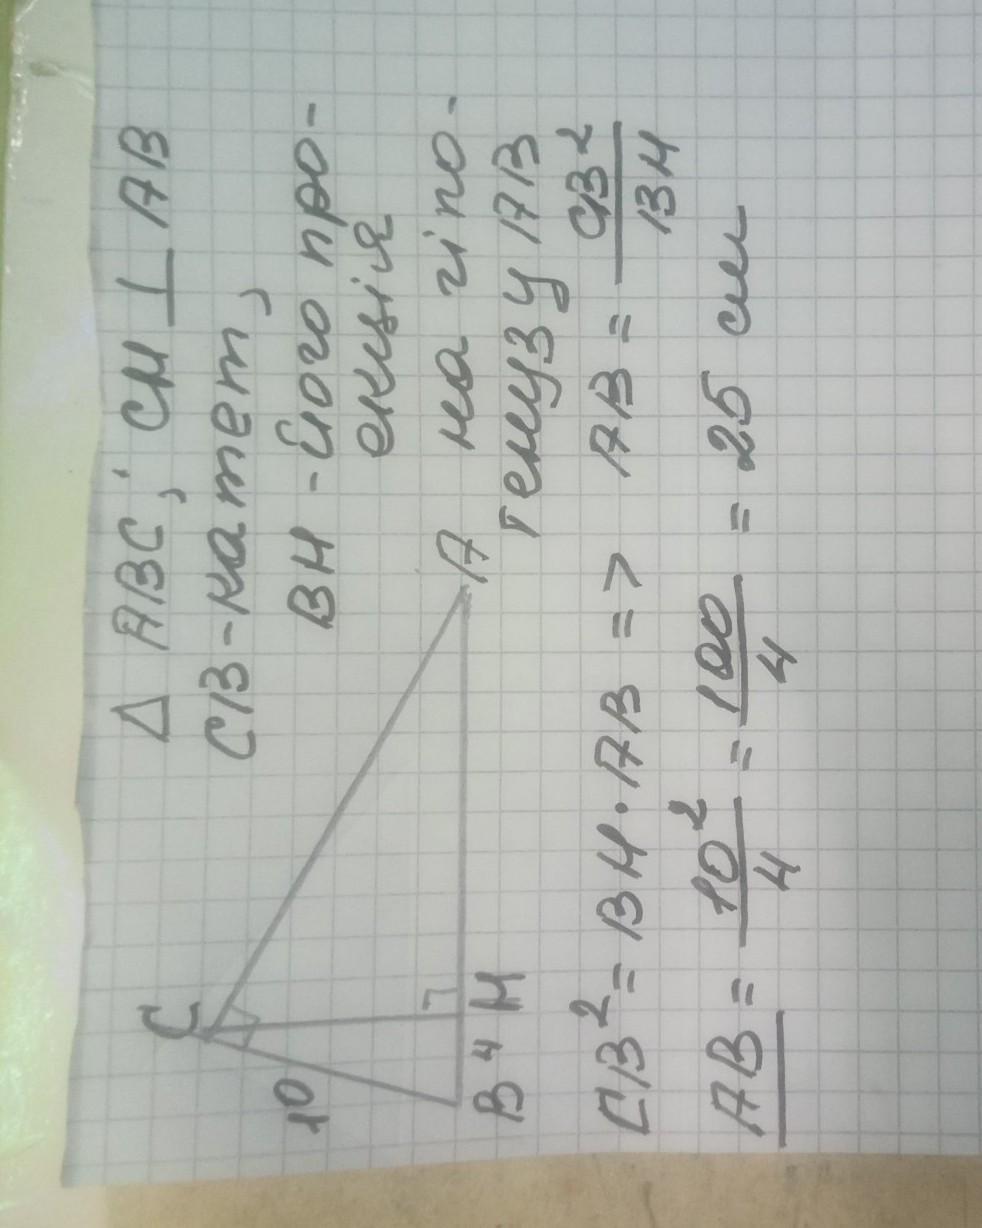 △ ABC; CH ⊥ AB
CB - катет,
BH - його про-
екція
на гіпо-
тенузу AB
C
10
B 4 H
A
CB² = BH · AB => AB = CB²/BH
AB = 10²/4 = 100/4 = 25 см